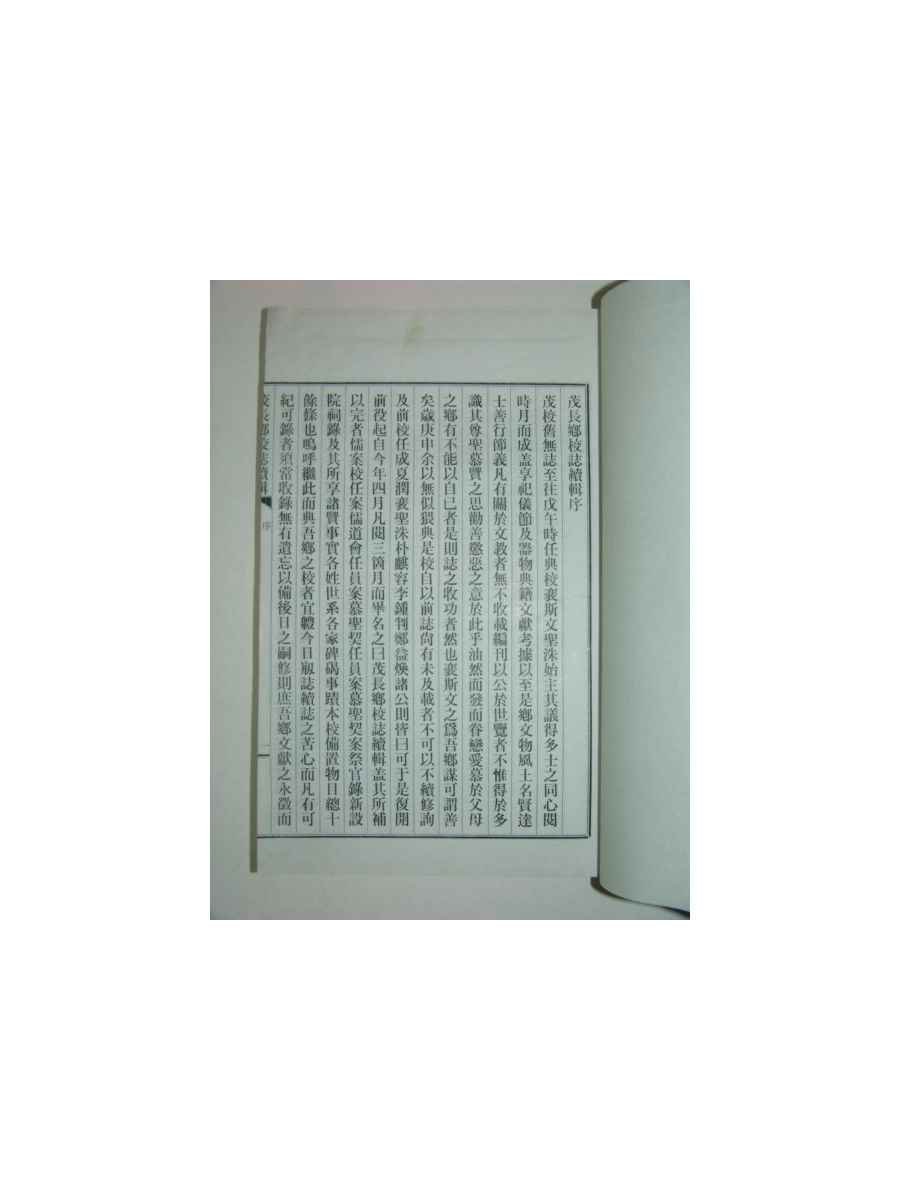 茂長鄕校誌續輯序
茂校舊無誌至往戊午時任典校裵斯文聖洙始主其議得多士之同心閱
時月而成盖享祀儀節及器物典籍文獻考據以至是鄕文物風土名賢達
士善行節義凡有關於文教者無不收載編刊以公於世覽者不惟得於多
識其尊聖慕賢之思勸善懲惡之意於此乎油然而發而眷戀愛慕於父母
之鄕有不能以自已者是則誌之收功者然也裵斯文之爲吾鄕謀可謂善
矣歲庚申余以無似猥典是校自以前誌尙有未及載者不可以不續修詢
及前校任成夏潤裵聖洙朴麒容李鍾判鄭益煥諸公則皆曰可于是復開
前役起自今年四月凡閱三箇月而畢名之曰茂長鄕校誌續輯盖其所補
以完者儒案校任案儒道會任員案慕聖契任員案慕聖契案祭官錄新設
院祠錄及其所享諸賢事實各姓世系各家碑碣事蹟本校備置物目總十
餘條也嗚呼繼此而典吾鄕之校者宜軆今日刱誌續誌之苦心而凡有可
紀可錄者須常收錄無有遺忘以備後日之嗣修則庶吾鄕文獻之永徵而
茂長鄕校誌續輯 序 一